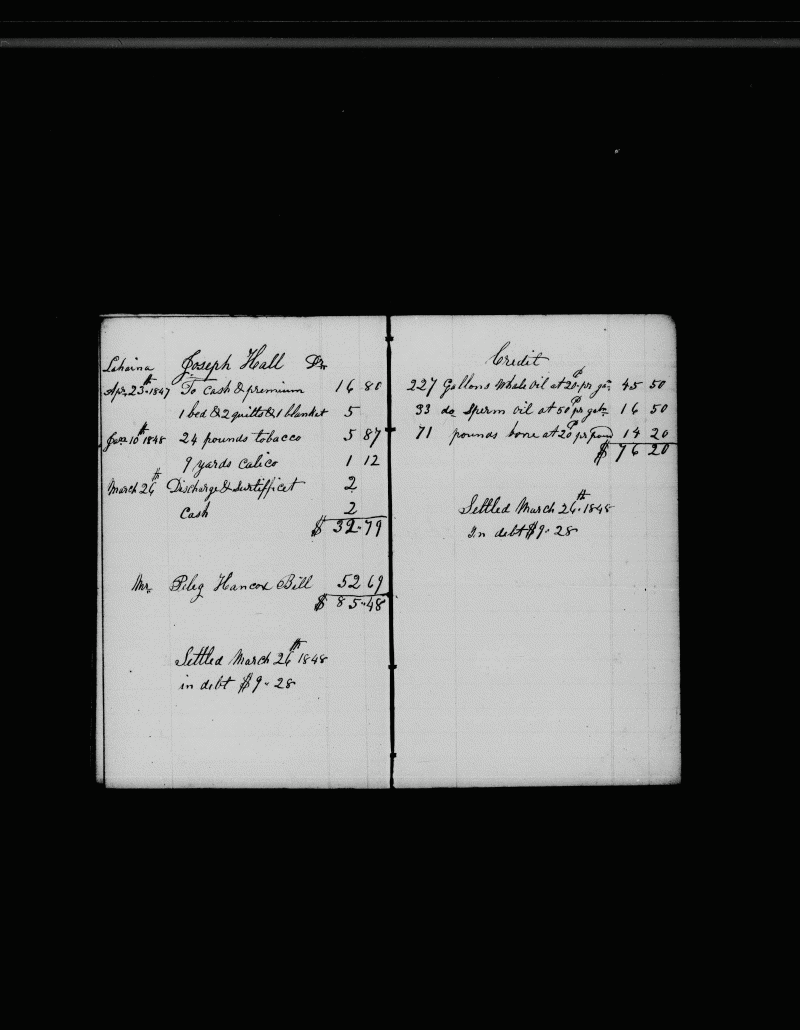 Lahaina Joseph Hall Dr
Apr. 23th 1847 To Cash & premium 16 80
1 bed & 2 quilts & 1 blanket 5
Jan 10th 1848 24 pounds tobacco 5 87
9 yards Calico 1 12
March 26th Discharge & Surtifficet 2
Cash 2
$ 32.79
Mr. Peleg Hancox Bill 52 69
$ 85.48
Settled March 26th 1848
in debt $9.28
Credit
227 Gallons Whale Oil at 20 P pr gn 45 50
33 do Sperm oil at 50 P pr galn 16 50
71 pounds bone at 20 P pr pound 14 20
$ 76 20
Settled March 26th 1848
In debt $9.28